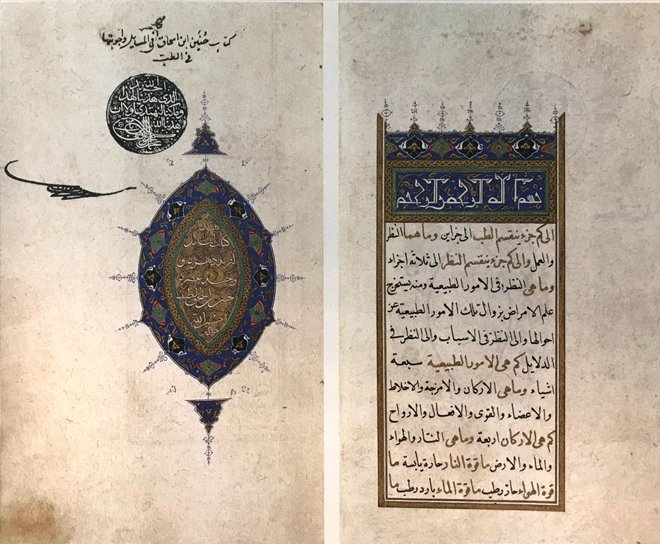 كتاب حنين ابن اسحاق في المسايل واجوبتها
في الطب
الحمد لله
الذي هدانا لهذا
وما كنا لنهتدي لولا ان
هدانا الله
بسم الله الرحمن الرحيم
الى كم جزء ينقسم الطب الى جزاين وما هما النظر
والعمل والى كم جزء ينقسم النظر الى ثلاثة اجزاء
وما هي النظر في الامور الطبيعية ومنه يستخرج
علم الامراض بزوال تلك الامور الطبيعية عن
احوالها والى النظر في الاسباب والى النظر في
الدلايل كم هي الامور الطبيعية سبعة
اشياء وما هي الاركان والامزجة والاخلاط
والاعضاء والقوى والافعال والارواح
كم هي الاركان اربعة وما هي النار والهواء
والماء والارض ما قوة النار حارة يابسة ما
قوة الهواء حار رطب ما قوة الماء بارد رطب ما